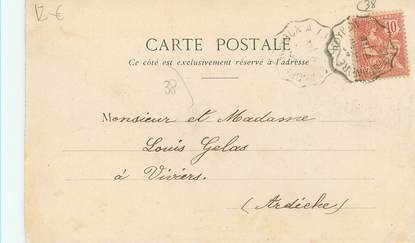 12 €
38
CARTE POSTALE
10
Ce côté est exclusivement réservé à l'adresse
38
Monsieur et Madame
Louis Gelas
à Viviers.
(Ardèche)